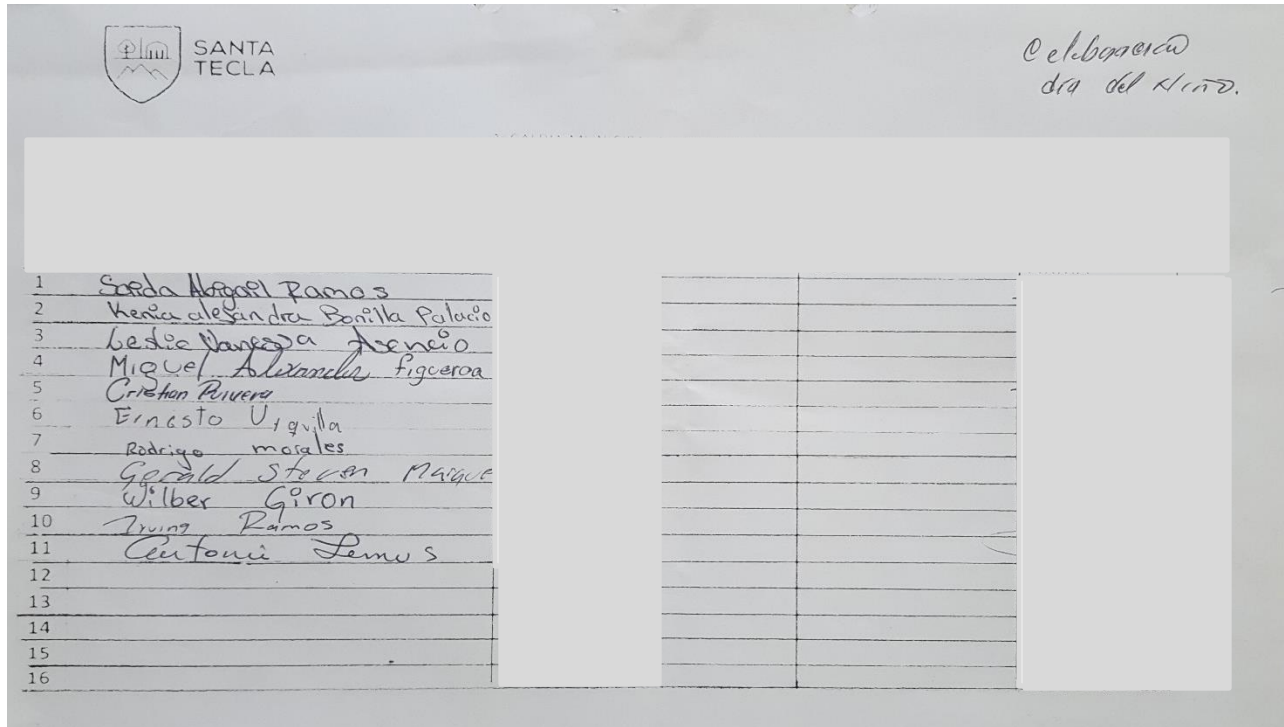 SANTA
TECLA
Celebracion
dia del Niño.
1 Saida Abigail Ramos
2 Kenia alejandra Bonilla Palacio
3 Leslie Vanessa Asencio
4 Miguel Alexander figueroa
5 Cristian Rivera
6 Ernesto Urquilla
7 Rodrigo morales
8 Gerald Steven Marque
9 Wilber Giron
10 Irving Ramos
11 Lemus
12
13
14
15
16